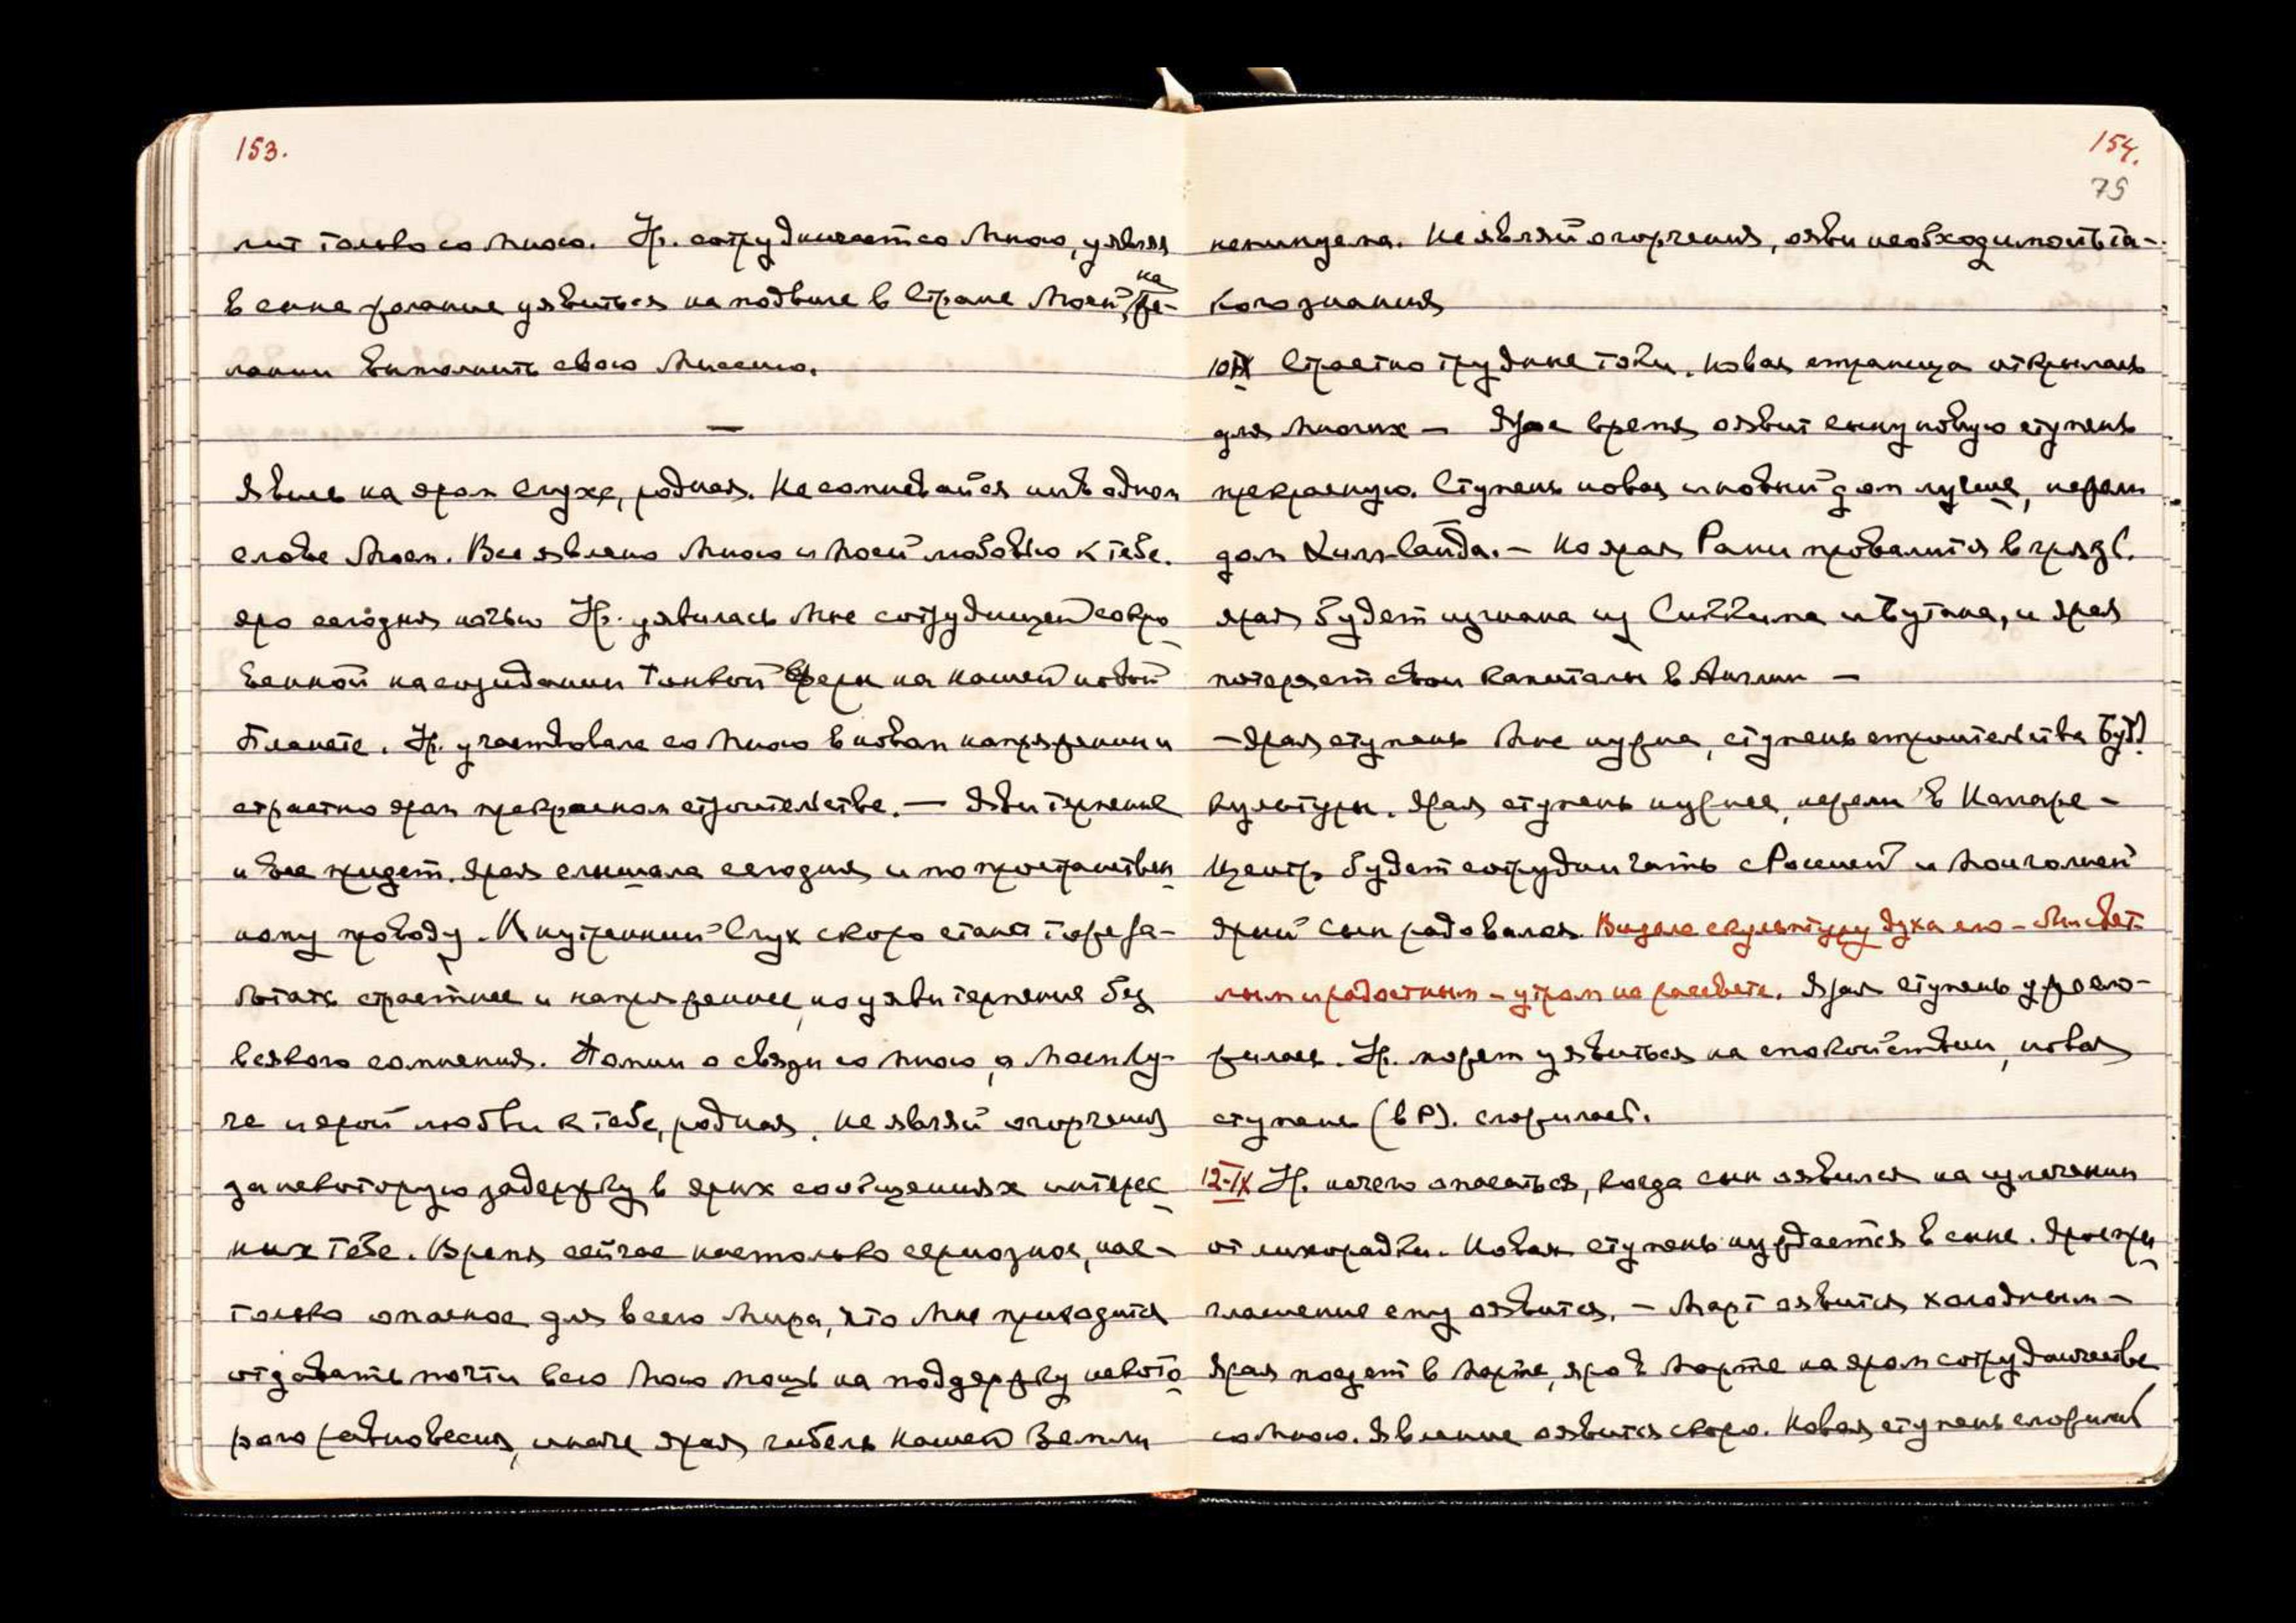 153.
лит только со Мною. Ур. сотрудничает со Мною, уявляя
в сыне желание уявиться на подвиге в Стране Моей, на же-
лании выполнить свою Миссию.
—
Явись на яром слухе, родная. Не сомневайся ни в одном
слове Моем. Все явлено Мною и Моей любовью к тебе.
Яро сегодня ночью Ур. уявилась Мне сотрудницей сокро-
венной на созидании Тонкой Сферы на нашей новой
Планете. Ур. участвовала со Мною в новом напряжении и
страстно яром прекрасном строительстве. — Яви терпение
и все придет. Ярая слышала сегодня и по пространствен-
ному проводу. Внутренний Слух скоро станет тоже ра-
ботать страстнее и напряженнее, но уяви терпение без
всякого сомнения. Помни о связи со Мною, о Моем Лу-
че и ярой любви к тебе, родная. Не являй огорчения
за некоторую задержку в ярых сообщениях интерес-
ных тебе. Время сейчас настолько серьезное, нас-
только опасное для всего Мира, что Мне приходится
отдавать почти всю Мою мощь на поддержку некото-
рого равновесия, иначе ярая гибель нашей Земли
154.
75
неминуема. Не являй огорчения, озяви необходимость та-
кого знания
10 IX Страстно трудные токи. Новая страница открылась
для Многих — Ярое время оявит сыну новую ступень
прекрасную. Ступень новая и новый дом лучше, нежели
дом — Но ярая Рани провалится в грязь.
Ярая будет изгнана из Сиккима и Бутана, и ярая
потеряет свои капиталы в Англии —
— Ярая ступень Мне нужна, ступень строительства Буд.
культуры. Ярая ступень нужнее, нежели в Канаре —
Центр будет сотрудничать с Россией и Монголией
Ярый Сын радовался. Видела скульптуру духа его — Ми свет-
лым и радостным — утром на рассвете. Ярая ступень уже сло-
жилась. Ур. может уявиться на спокойствии, новая
ступень (в Р). сложилась.
12-IX Ур. нечего опасаться, когда сын оявился на излечении
от лихорадки. Новая ступень нуждается в сыне. Ярое при-
глашение ему оявится. — Март оявится холодным —
Ярая поедет в Марте, яро в Марте на яром сотрудничестве
со Мною. Явление оявится скоро. Новая ступень сложилась